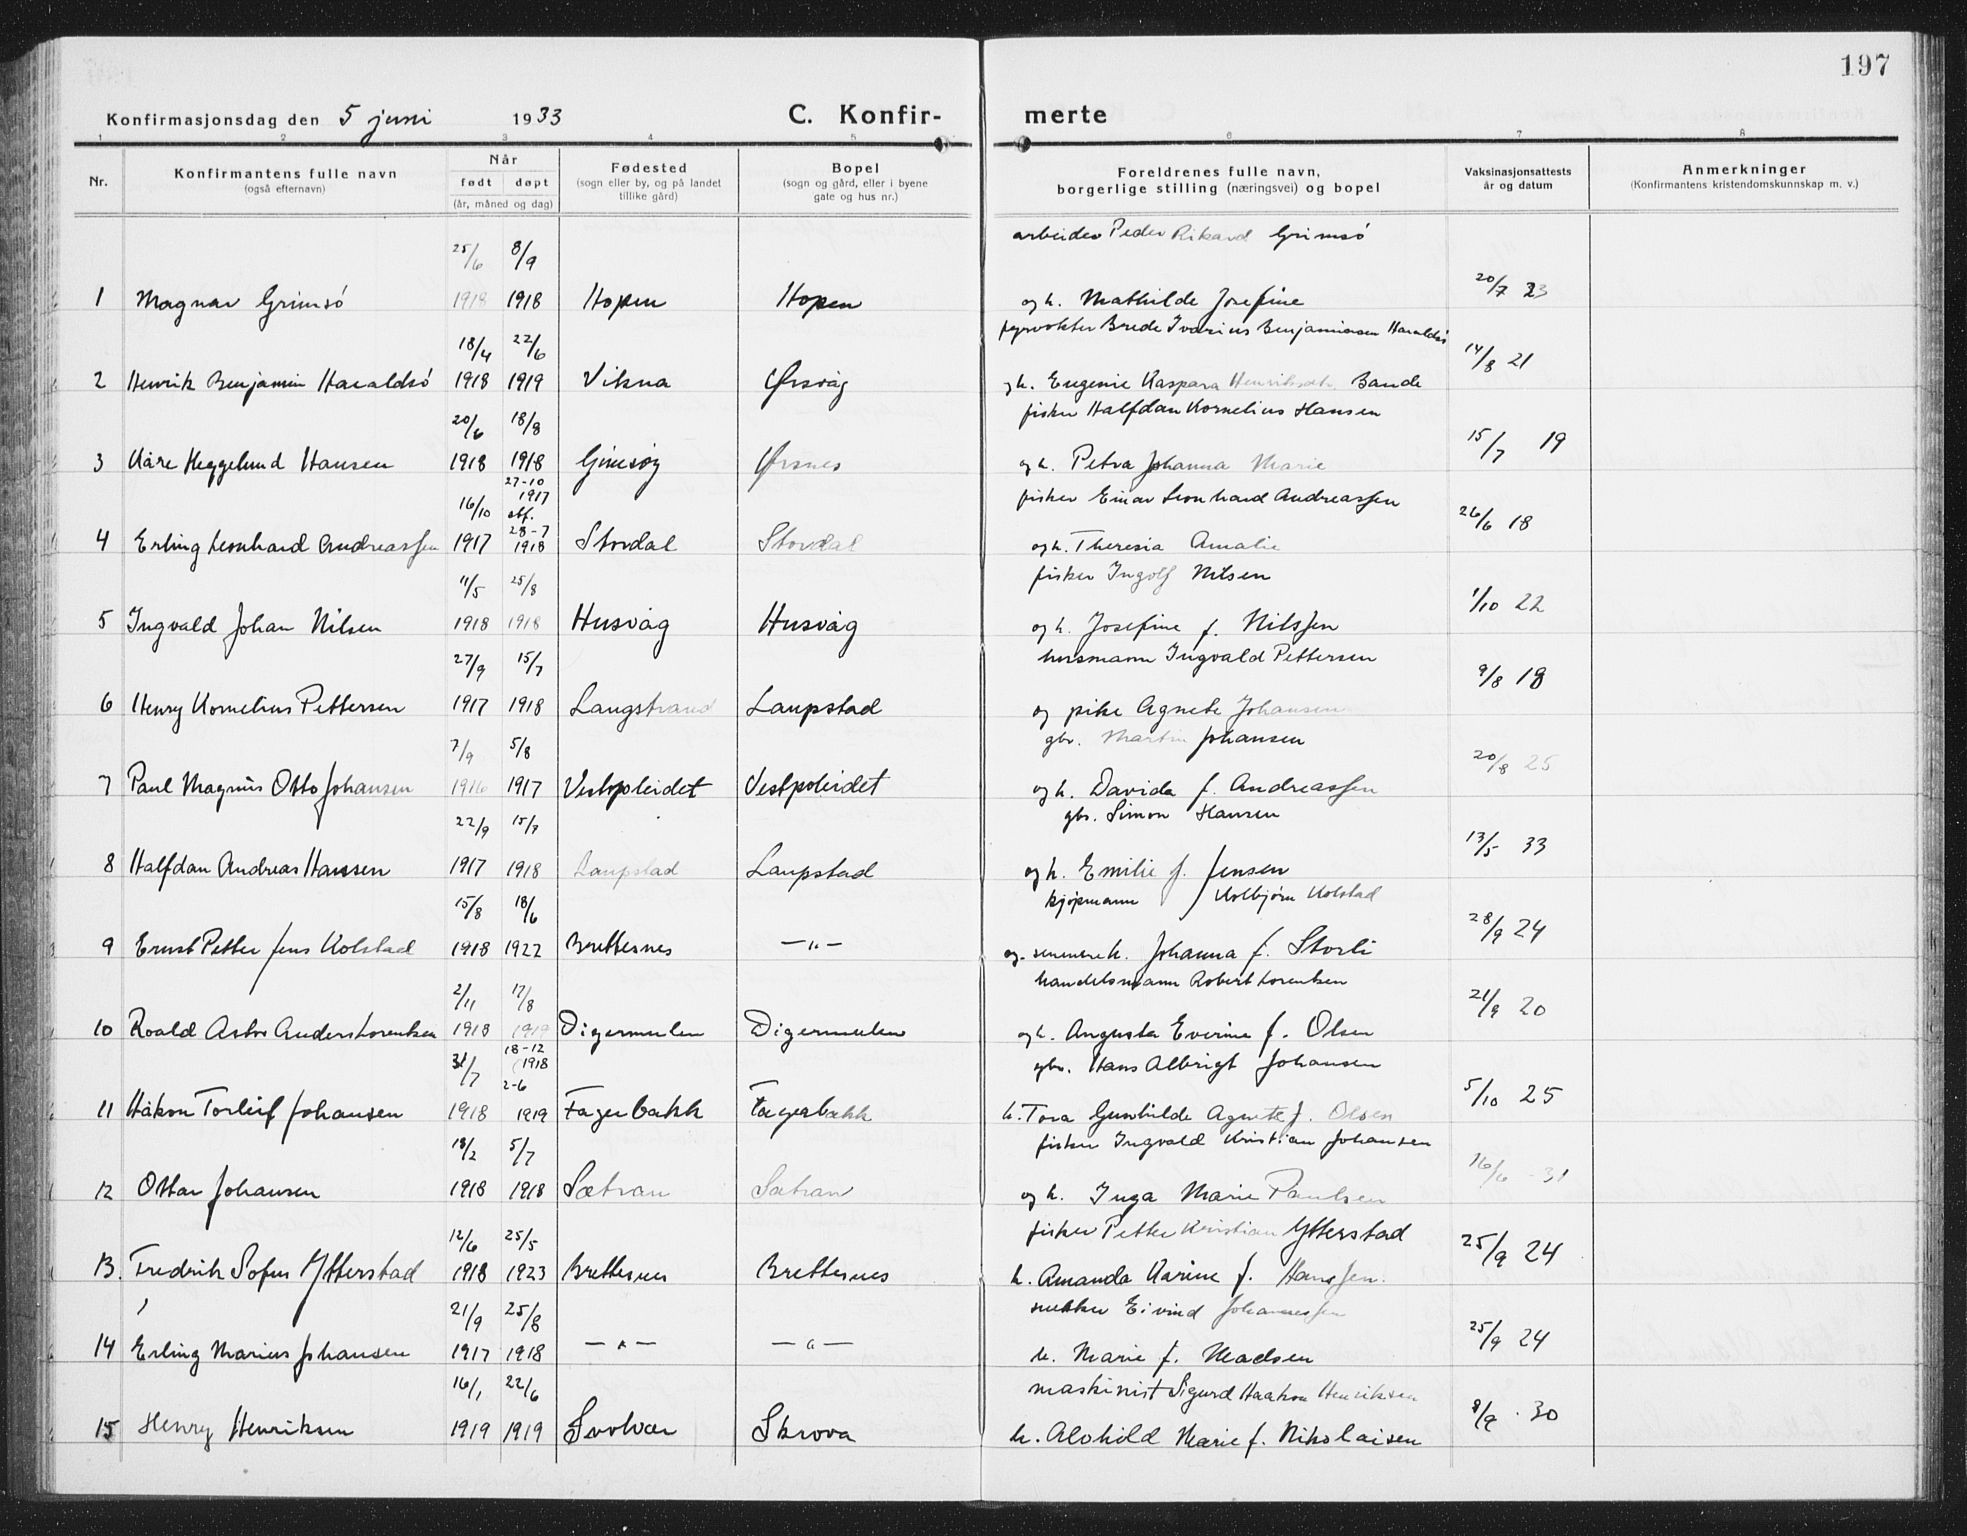 197
Konfirmasjonsdag den 5 juni 1933 C. Konfir- merte
1 2 3 4 5 6 7 8
Nr. Konfirmantens fulle navn (også efternavn) Når født døpt (år, måned og dag) Fødested (sogn eller by, og på landet tillike gård) Bopel (sogn og gård, eller i byene gate og hus nr.) Foreldrenes fulle navn, borgerlige stilling (næringsvei) og bopel Vaksinasjonsattests år og datum Anmerkninger (Konfirmantens kristendomskunnskap m. v.)
25/6 8/9 arbeider Peder Rikard Grimsö
1 Magnar Grimsö 1918 1918 Hopen Hopen og h. Mathilde Josefine 20/7 23
18/4 22/6 fyrvokter Brede Ivarius Benjaminsen Haraldsö
2 Henrik Benjamin Haraldsö 1918 1919 Vikna Ørsvåg og h. Eugenie Kaspara Henriksdtr. Bande 14/8 21
20/6 18/8 fisker Halfdan Kornelius Hansen
3 Kåre Heggelund Hansen 1918 1918 Gimsøy Ørsnes og h. Petra Johanna Marie 15/7 19
16/10 27-10 1917 stf. 28-7 fisker Einar Leonhard Andreassen
4 Erling Leonhard Andreassen 1917 1918 Stordal Stordal og h. Theresia Amalie 26/6 18
11/5 25/8 fisker Ingolf Nilsen
5 Ingvald Johan Nilsen 1918 1918 Husvåg Husvåg og h. Josefine f. Nilssen 1/10 22
27/9 15/7 husmann Ingvald Pettersen
6 Henry Kornelius Pettersen 1917 1918 Langstrand Laupstad og pike Agnete Johansen 9/8 18
7/9 5/8 gbr. Martin Johansen
7 Paul Magnus Otto Johansen 1916 1917 Vestpoleidet Vestpoleidet og h. Davida f. Andreassen 20/8 25
22/9 15/7 gbr. Simon Hansen
8 Halfdan Andreas Hansen 1917 1918 Laupstad Laupstad og h. Emilie f. Jensen 13/5 33
15/8 18/6 kjøpmann Kolbjørn Kolstad
9 Ernst Petter Jens Kolstad 1918 1922 Brettesnes —"— og senere h. Johanna f. Storli 28/9 24
2/11 17/8 handelsmann Robert Lorentsen
10 Roald Astor Anders Lorentsen 1918 1919 Digermulen Digermulen og h. Augusta Everine f. Olsen 21/9 20
31/7 18-12 1918 2-6 gbr. Hans Albrigt Johansen
11 Håkon Torleif Johansen 1918 1919 Fagerbakk Fagerbakk h. Tora Gunhilde Agnete f. Olsen 5/10 25
18/2 5/7 fisker Ingvald Kristian Johansen
12 Ottar Johansen 1918 1918 Sætran Sætran og h. Inga Marie Paulsen 16/6 - 31
12/6 25/5 fisker Petter Kristian Ytterstad
13. Fredrik Sofus Ytterstad 1918 1923 Brettesnes Brettesnes h. Amanda Karine f. Hanssen. 25/9 24
21/9 25/8 snekker Eivind Johannessen
14 Erling Marius Johansen 1917 1918 —"— —"— h. Marie f. Madsen 25/9 24
16/1 22/6 maskinist Sigurd Haakon Henriksen
15 Henry Henriksen 1919 1919 Svolvær Skrova h. Alvhild Marie f. Nikolaisen 8/9 . 30